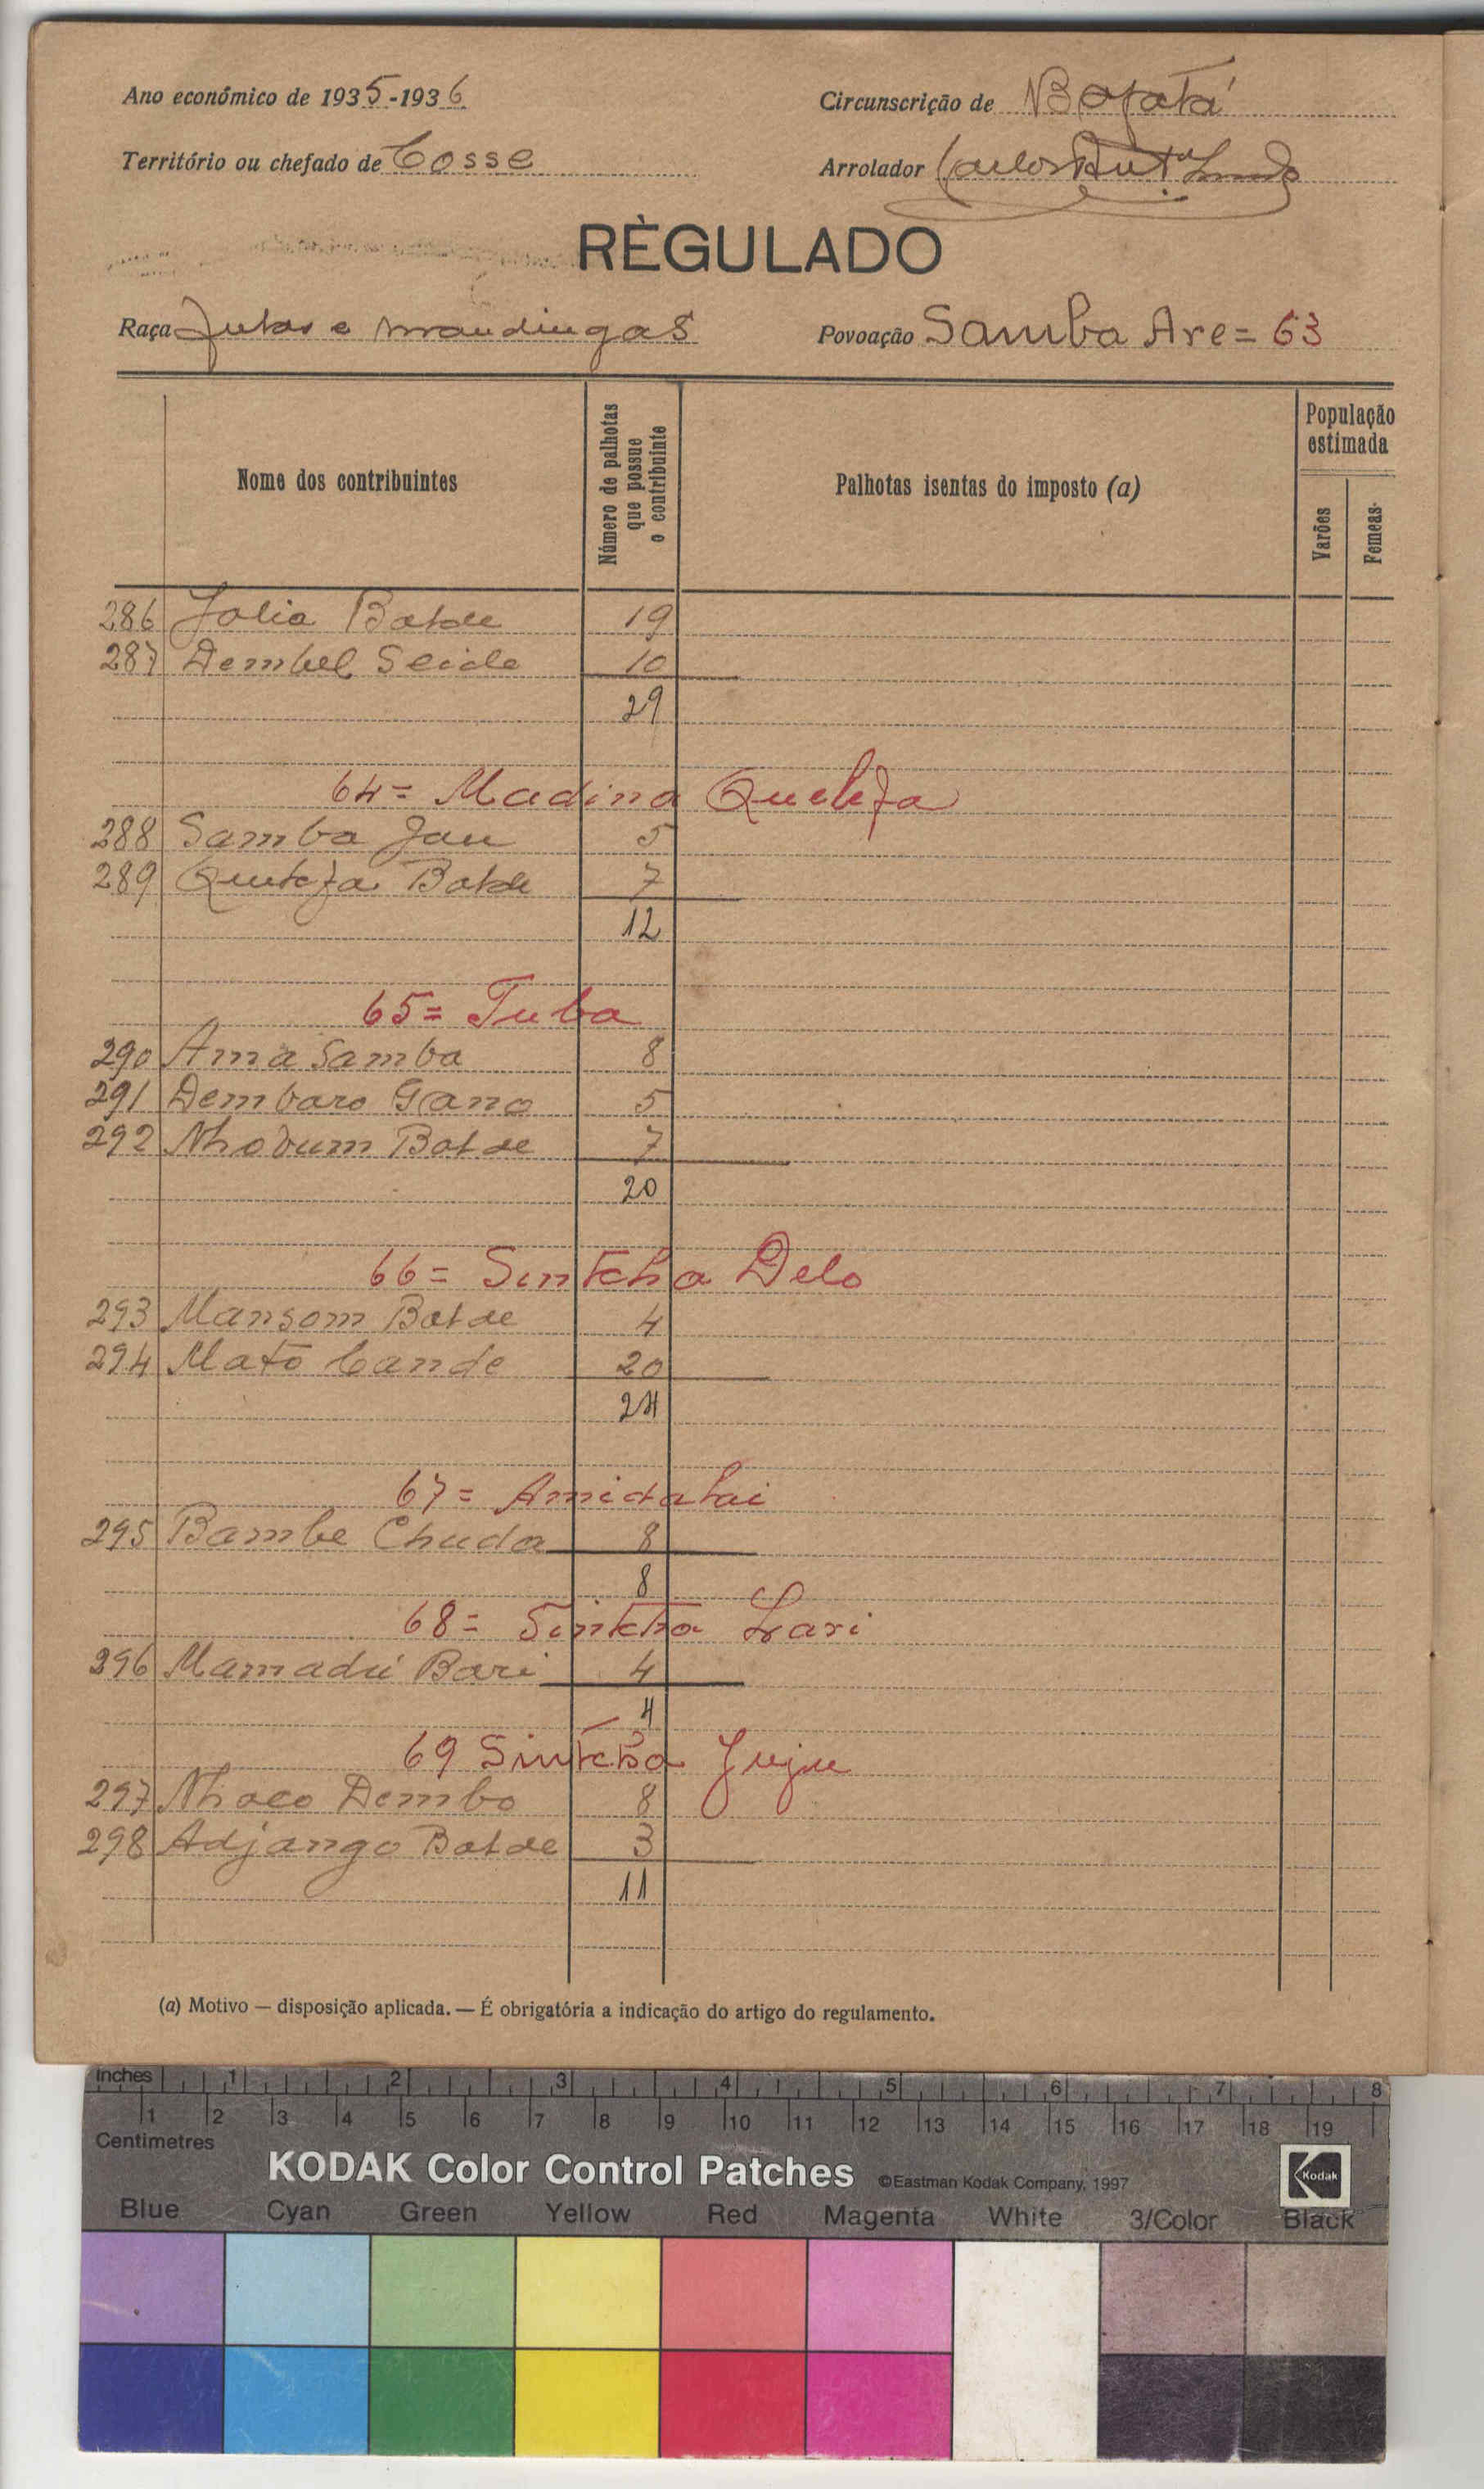 Ano económico de 1935-1936
Circunscrição de Bafatá
Território ou chefado de Cosse
Arrolador Carlos
RÈGULADO
Raça Fulas e mandingas
Povoação Samba Are = 63
Nome dos contribuintes
Número de palhotas que possue o contribuinte
Palhotas isentas do imposto (a)
População estimada
Varões
Femeas
286 Jalia Balde 19
287 Dembel Seide 10
29
64 = Madina Queleja
288 Samba Jau 5
289 Balde 7
12
65 = Tuba
290 Ama Samba 8
291 Dembaro Gano 5
292 Nhobum Balde 7
20
66 = Sintcha Delo
293 Mansom Balde 4
294 Mato Cande 20
24
67 = Amidalai
295 Bambe Chuda 8
8
68 = Sintcha Lari
296 Mamadú Bari 4
4
69 Sintcha Juju
297 Nhaco Dembo 8
298 Adjango Balde 3
11
(a) Motivo — disposição aplicada. — É obrigatória a indicação do artigo do regulamento.
Inches 1 2 3 4 5 6 7 8
1 2 3 4 5 6 7 8 9 10 11 12 13 14 15 16 17 18 19
Centimetres
KODAK Color Control Patches ©Eastman Kodak Company, 1997 Kodak
Blue Cyan Green Yellow Red Magenta White 3/Color Black